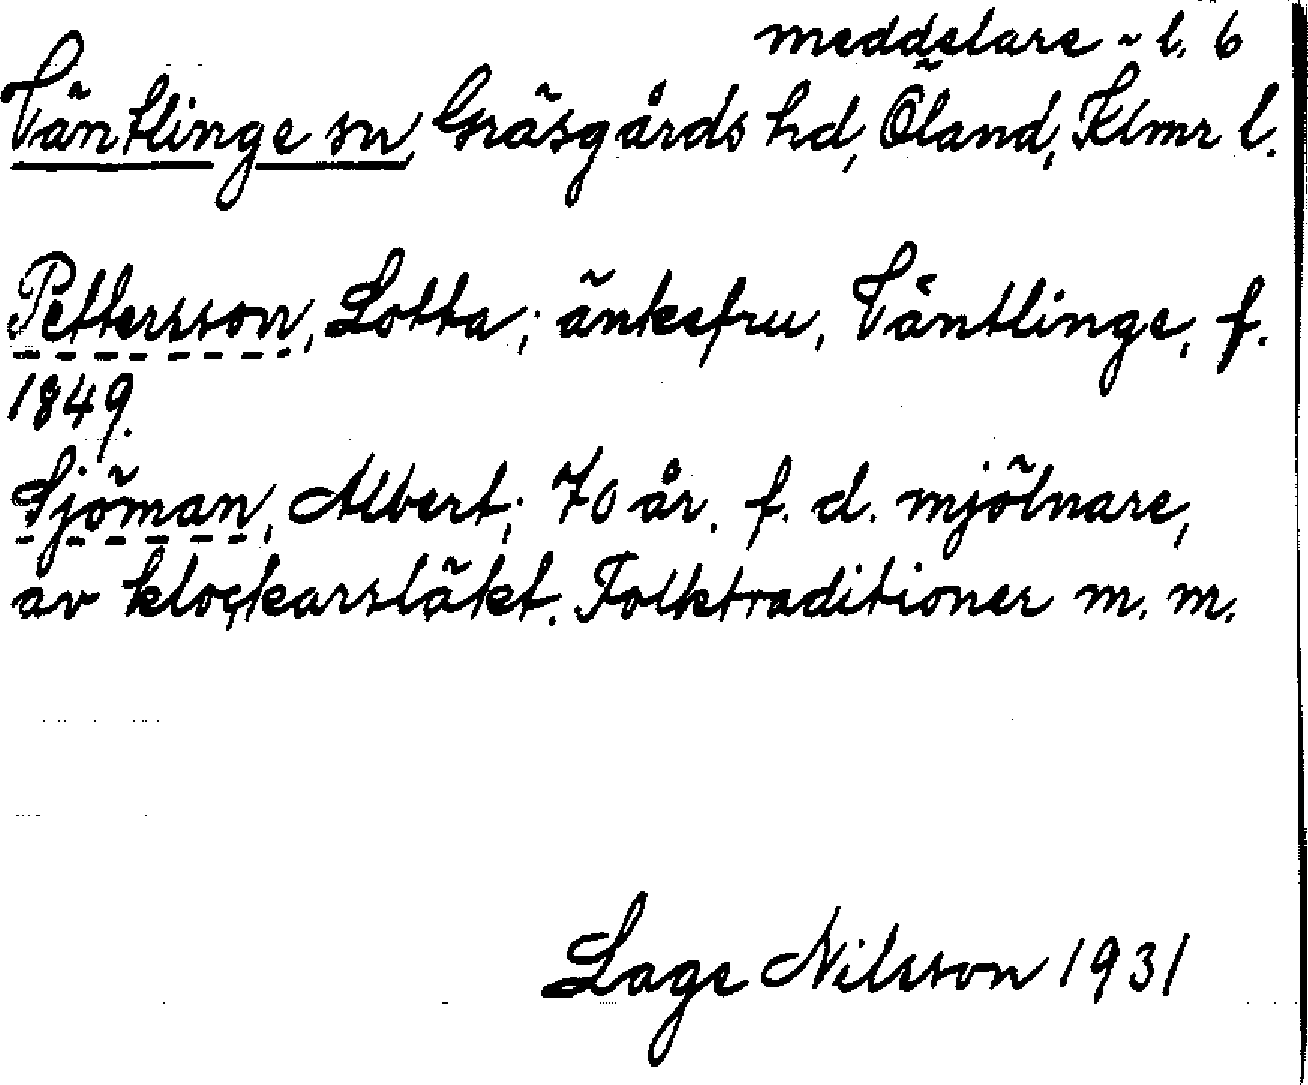 meddelare - l. 6
Väntlinge sn, Gräsgårds hd, Öland, Klmr l.
Pettersson, Lotta; änkefru, Väntlinge, f.
1849.
Sjöman, Albert; 70 år. f. d. mjölnare,
av klockarsläkt. Folktraditioner m. m.
Lage Nilsson 1931